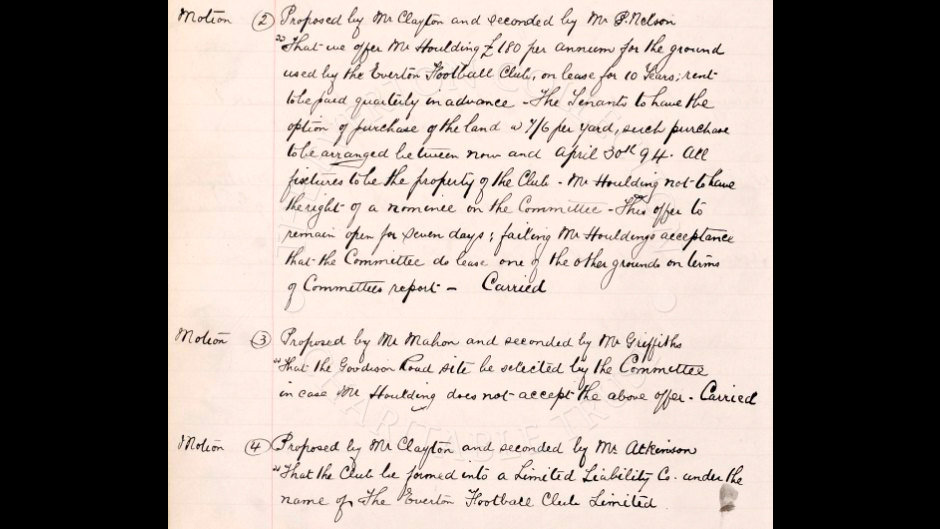 Motion (2) Proposed by Mr Clayton and seconded by Mr P. Nelson
"That we offer Mr Houlding £180 per annum for the ground
used by the Everton Football Club, on lease for 10 Years; rent
to be paid quarterly in advance - The Tenants to have the
option of purchase of the land @ 7/6 per yard, such purchase
to be arranged between now and April 30th 94. All
fixtures to be the property of the Club - Mr Houlding not to have
the right of a nominee on the Committee - This offer to
remain open for seven days; failing Mr Houldings acceptance
that the Committee do lease one of the other grounds on terms
of Committees report - Carried
Motion (3) Proposed by Mr Mahon and seconded by Mr Griffiths
"That the Goodison Road site be selected by the Committee
in case Mr Houlding does not accept the above offer - Carried
Motion (4) Proposed by Mr Clayton and seconded by Mr Atkinson
"That the Club be formed into a Limited Liability Co. under the
name of The Everton Football Club Limited